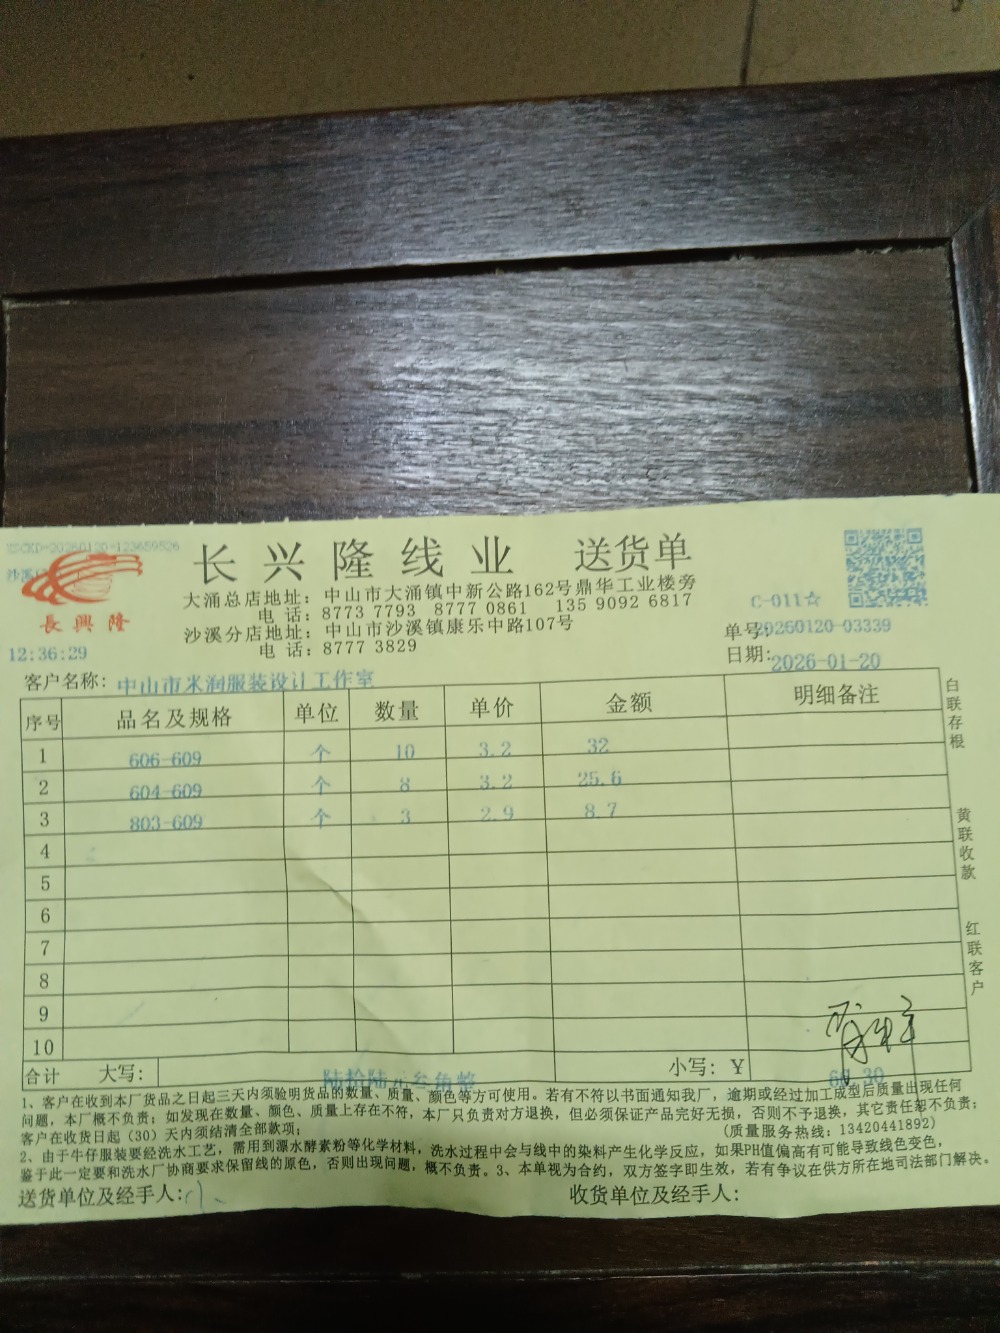 XSCKD-20260120-123659526
长兴隆线业 送货单
沙溪
長興隆
大涌总店地址：中山市大涌镇中新公路162号鼎华工业楼旁
电话：8773 7793 8777 0861 135 9092 6817
沙溪分店地址：中山市沙溪镇康乐中路107号
电话：8777 3829
C-011☆
单号：20260120-03339
12:36:29
日期：2026-01-20
客户名称：中山市米润服装设计工作室
序号 品名及规格 单位 数量 单价 金额 明细备注
1 606-609 个 10 3.2 32
2 604-609 个 8 3.2 25.6
3 803-609 个 3 2.9 8.7
4
5
6
7
8
9
10
合计 大写： 陆拾陆元叁角整 小写：￥ 66.30
白联存根
黄联收款
红联客户
1、客户在收到本厂货品之日起三天内须验明货品的数量、质量、颜色等方可使用。若有不符以书面通知我厂，逾期或经过加工成型后质量出现任何
问题，本厂概不负责；如发现在数量、颜色、质量上存在不符，本厂只负责对方退换，但必须保证产品完好无损，否则不予退换，其它责任恕不负责；
客户在收货日起（30）天内须结清全部款项； (质量服务热线：13420441892)
2、由于牛仔服装要经洗水工艺，需用到漂水酵素粉等化学材料，洗水过程中会与线中的染料产生化学反应，如果PH值偏高有可能导致线色变色，
鉴于此一定要和洗水厂协商要求保留线的原色，否则出现问题，概不负责。3、本单视为合约，双方签字即生效，若有争议在供方所在地司法部门解决。
送货单位及经手人： 收货单位及经手人：